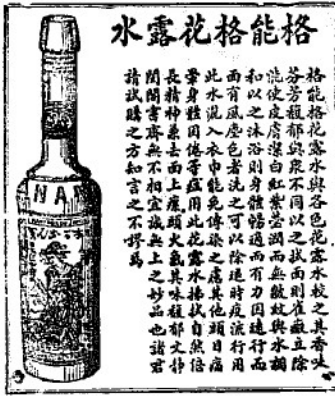 格能格花露水
格能格花露水與各色花露水較之其香味
芬芳馥郁與衆不同以之拭面則雀癍立除
能使皮膚潔白紅紫瑩潤而無皺紋與水調
和以之沐浴則身體暢適而有力因遠行而
面有風塵色者洗之可以除退時疫流行用
此水混入衣巾能免傳染之虞其他頭目痛
暈身體困倦等症用此花露水搽拭自然倍
長精神兼去面上瘰頭火氣其味馥郁文靜
閨閣書齋無不相宜誠無上之妙品也諸君
請試購之方知言之不謬焉
NAN